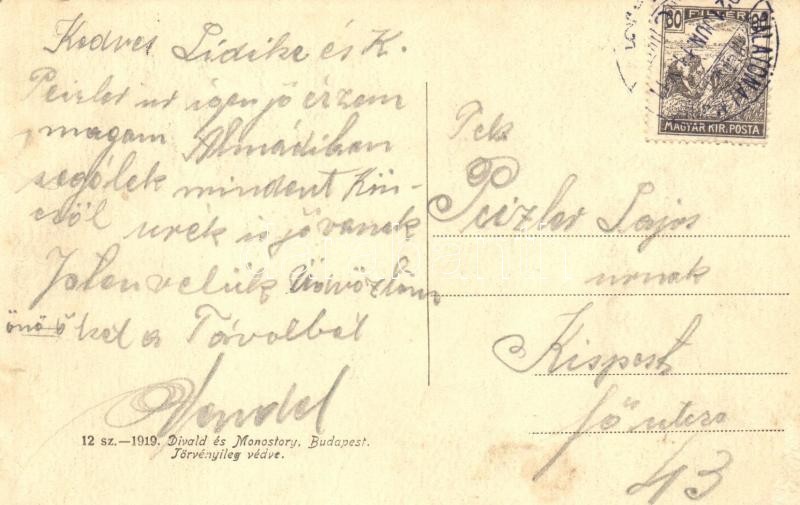 Kedves Lidike és K.
Peizler úr igen jó érzem
magam Almádiban
sególek mindent Kin-
csöl urék is jó vanak
Isten velük Üdvözlom
önöőket a Távolból
Vendel
12 sz.—1919. Divald és Monostory, Budapest.
Törvényileg védve.
80 FILLÉR 80
MAGYAR KIR. POSTA
BALATONAL
JUN
Tek
Peizler Lajos
urnak
Kispest
főutca
43